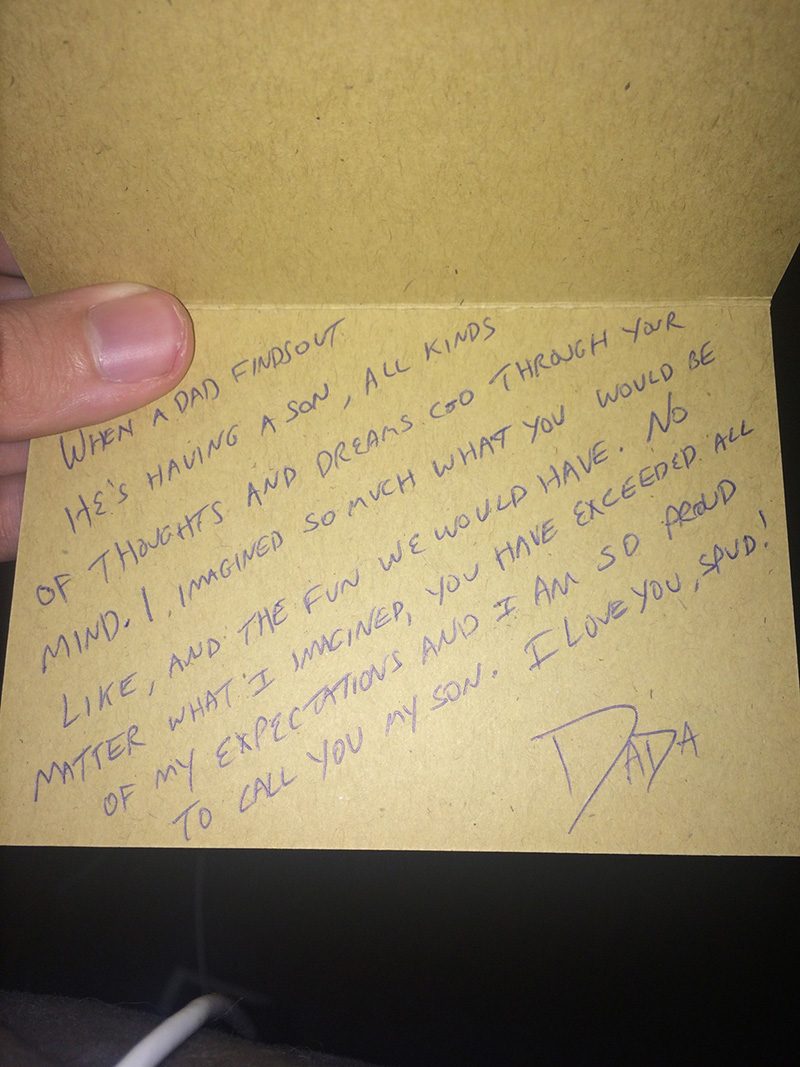 WHEN A DAD FINDSOUT
HE'S HAVING A SON, ALL KINDS
OF THOUGHTS AND DREAMS GO THROUGH YOUR
MIND. I IMAGINED SO MUCH WHAT YOU WOULD BE
LIKE, AND THE FUN WE WOULD HAVE. NO
MATTER WHAT I IMAGINED, YOU HAVE EXCEEDED ALL
OF MY EXPECTATIONS AND I AM SO PROUD
TO CALL YOU MY SON. I LOVE YOU, SPUD!
DADA